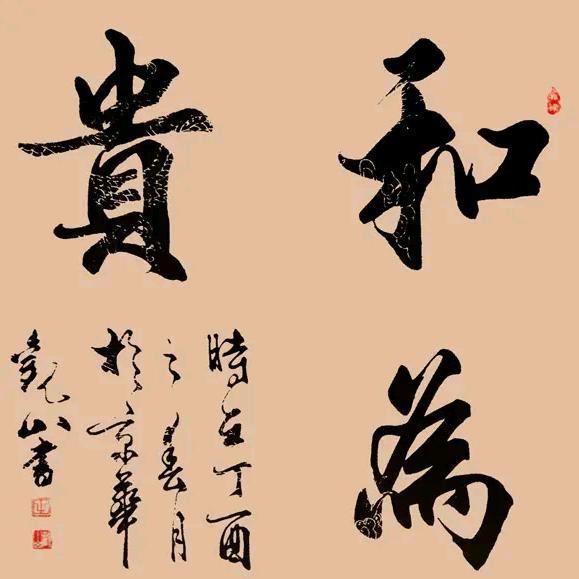 和為
貴
時在丁酉
之春月
於京華
觀山書